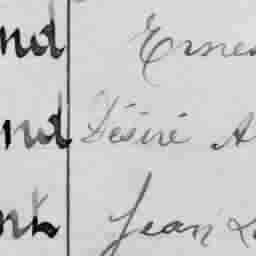 nd Ernes
nd Désiré A
Jean L